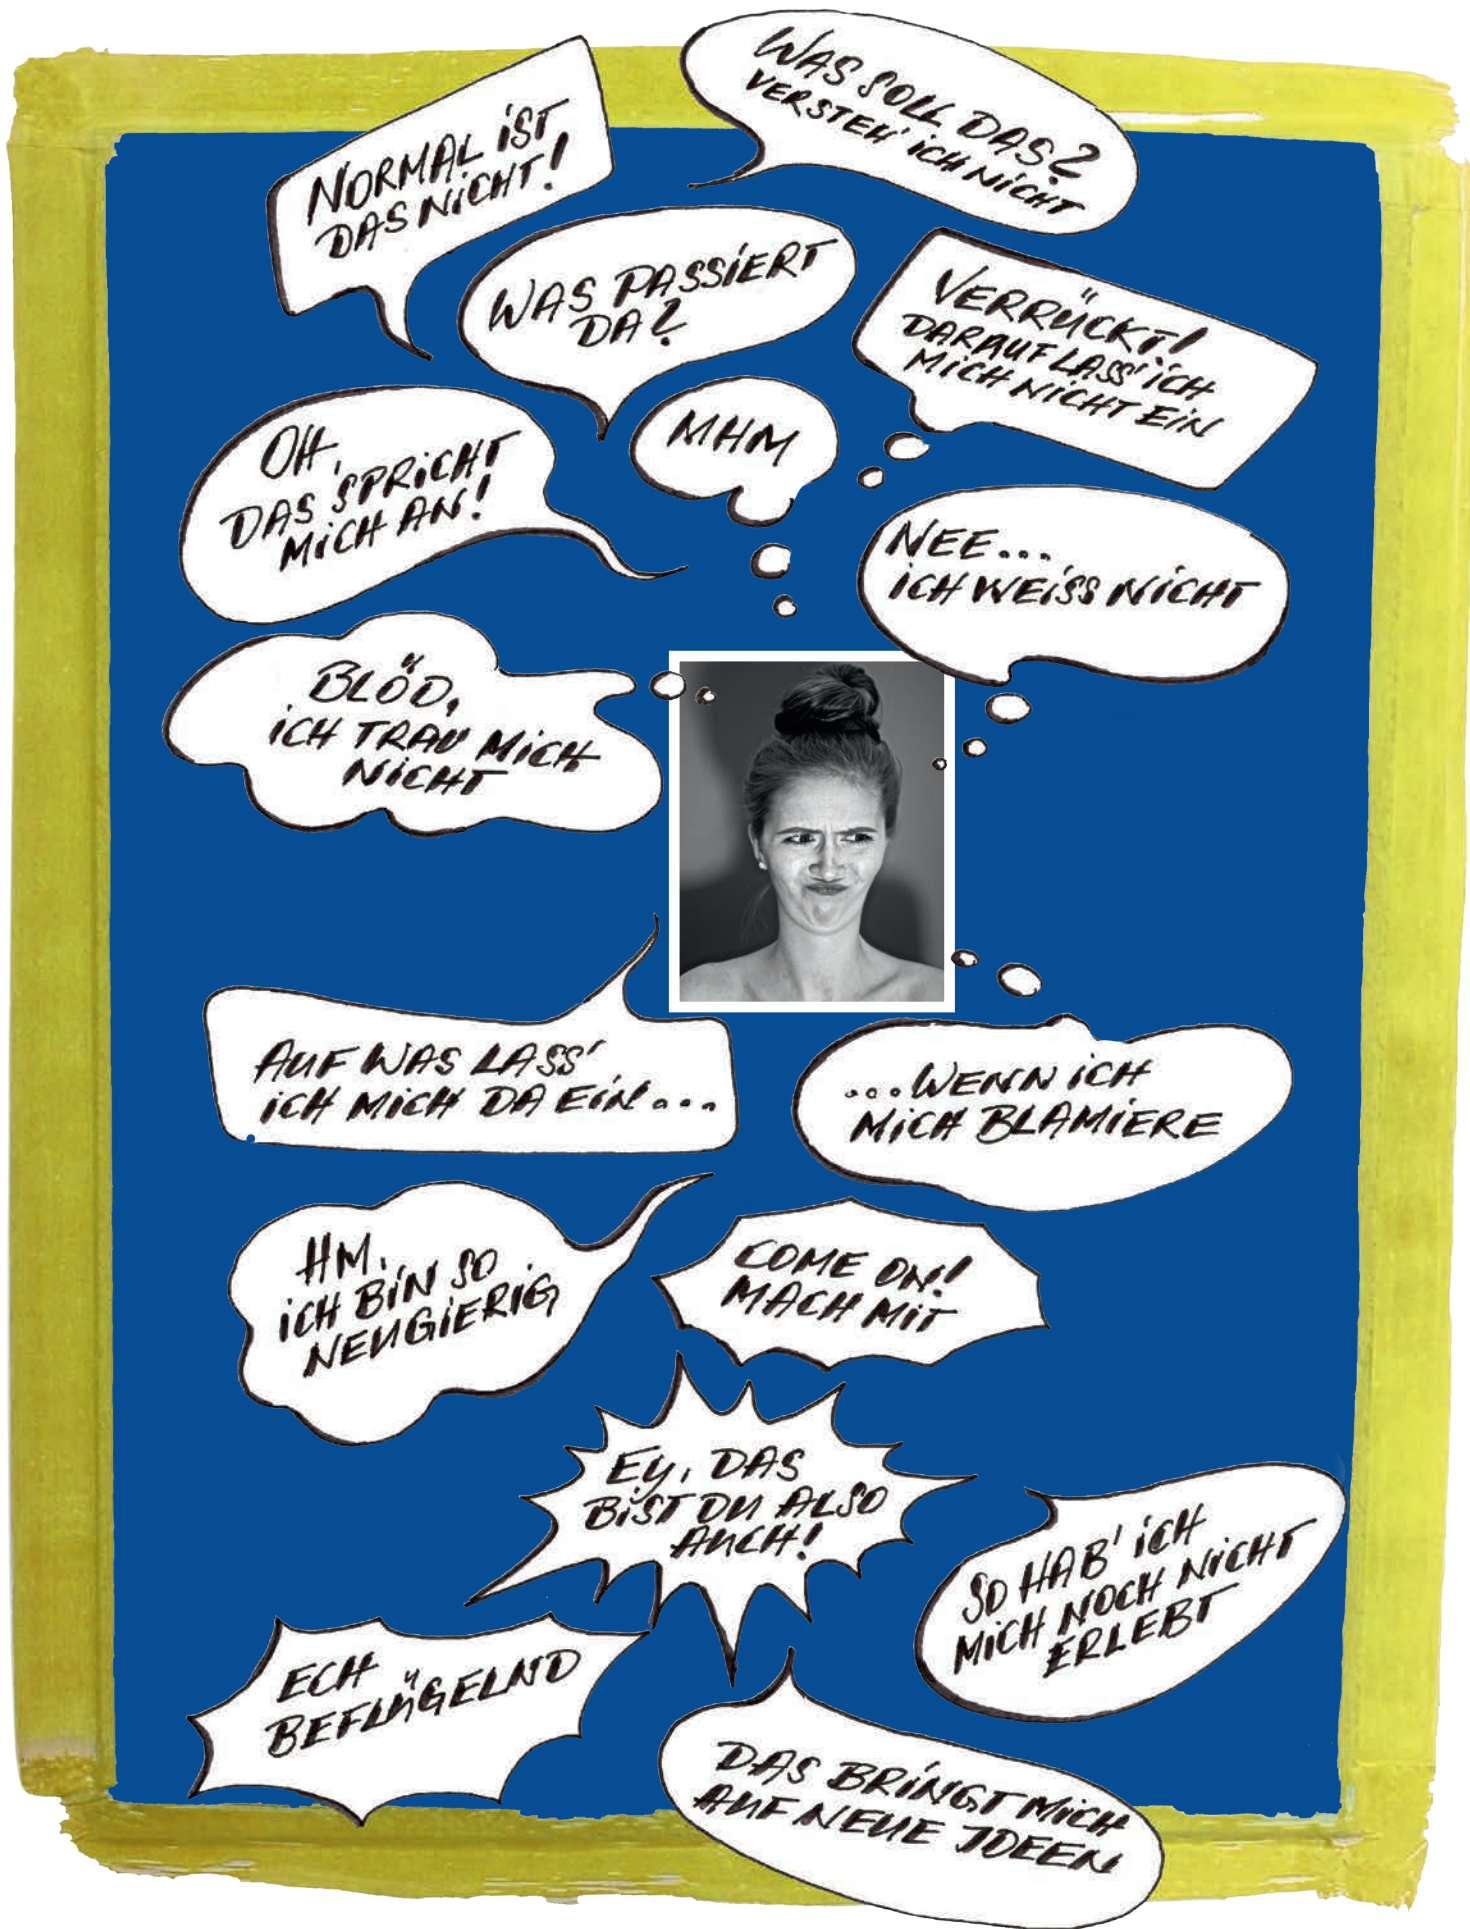 WAS SOLL DAS?
VERSTEH' ICH NICHT
NORMAL IST
DAS NICHT!
WAS PASSIERT
DA?
VERRÜCKT!
DARAUF LASS' ICH
MICH NICHT EIN
OH,
DAS SPRICHT
MICH AN!
MHM
NEE...
ICH WEISS NICHT
BLÖD,
ICH TRAU MICH
NICHT
AUF WAS LASS'
ICH MICH DA EIN...
...WENN ICH
MICH BLAMIERE
HM,
ICH BIN SO
NEUGIERIG
COME ON!
MACH MIT
EY, DAS
BIST DU ALSO
AUCH!
SO HAB' ICH
MICH NOCH NICHT
ERLEBT
ECH
BEFLÜGELND
DAS BRINGT MICH
AUF NEUE IDEEN